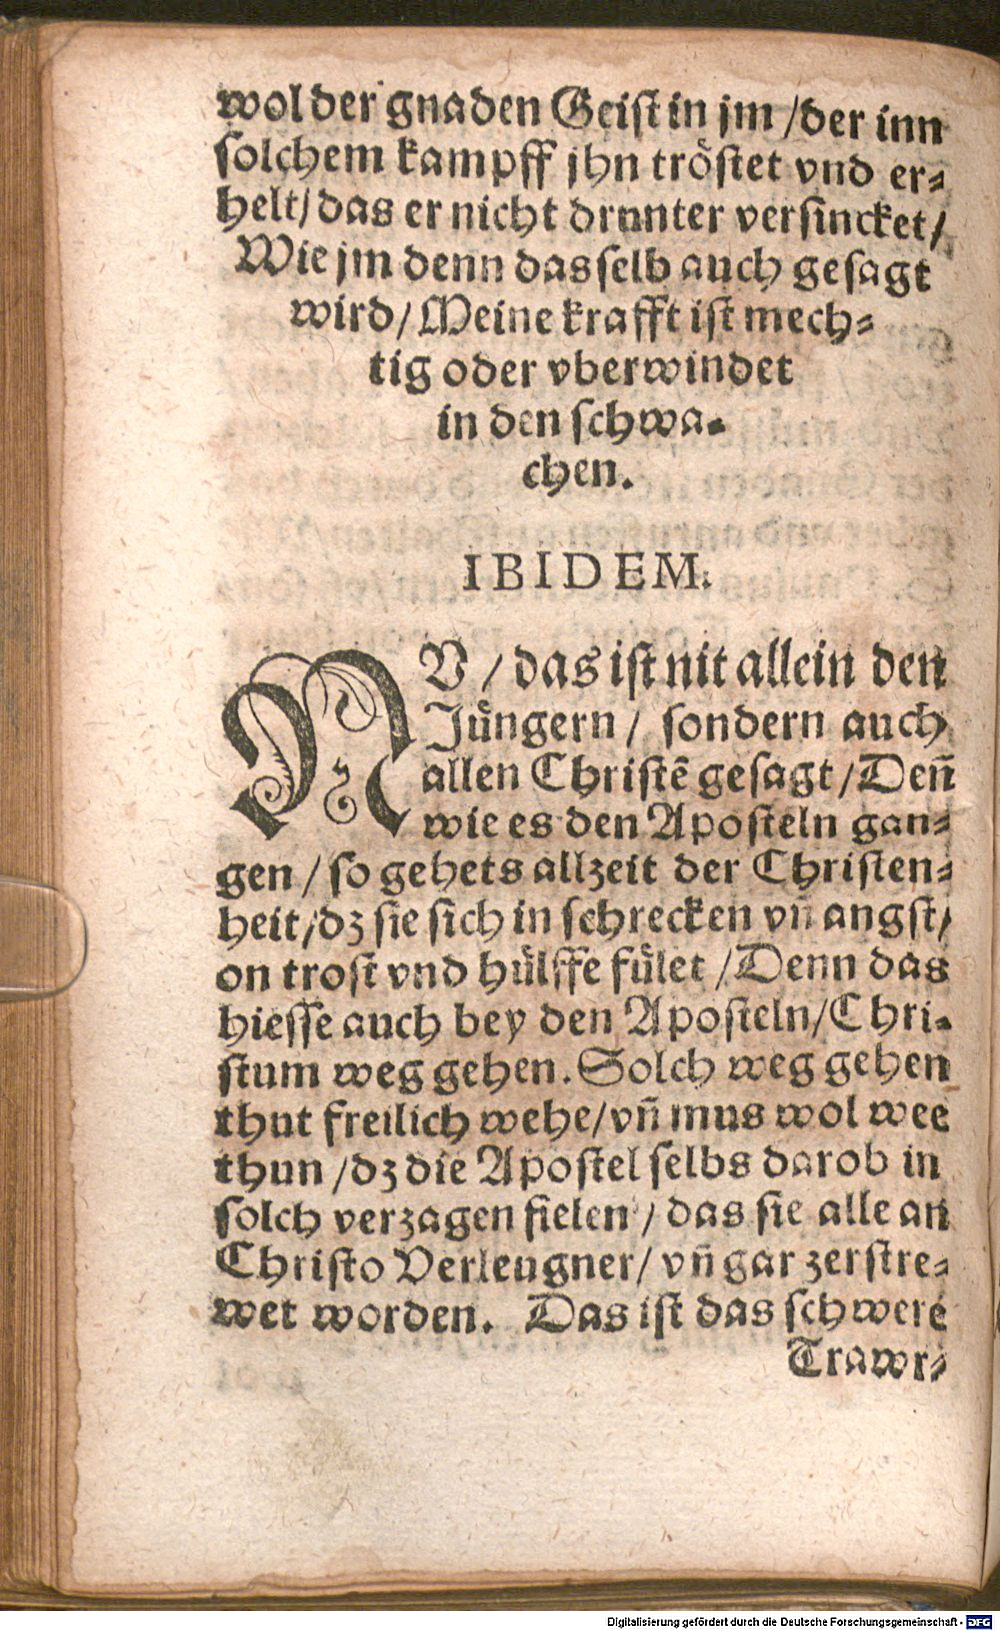 wol der gnaden Geist in jm / der inn
solchem kampff jhn tröstet vnd er⸗
helt / das er nicht drunter versincket /
Wie jm denn dasselb auch gesagt
wird / Meine krafft ist mech⸗
tig oder vberwindet
in den schwa⸗
chen.
IBIDEM.
NV / das ist nit allein den
Jüngern / sondern auch
allen Christē gesagt / Deñ
wie es den Aposteln gan⸗
gen / so gehets allzeit der Christen⸗
heit / dz sie sich in schrecken vñ angst /
on trost vnd hülffe fület / Denn das
hiesse auch bey den Aposteln / Chri⸗
stum weg gehen. Solch weg gehen
thut freilich wehe / vñ mus wol wee
thun / dz die Apostel selbs darob in
solch verzagen fielen / das sie alle an
Christo Verleugner / vñ gar zerstre⸗
wet worden. Das ist das schwere
Trawr⸗
Digitalisierung gefördert durch die Deutsche Forschungsgemeinschaft - DFG